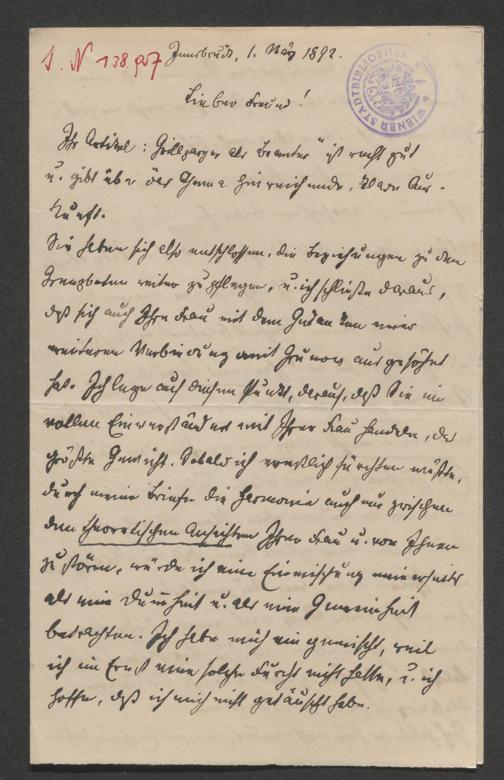 I. N 138.957
Innsbruck, 1. März 1892.
WIENER STADTBIBLIOTHEK
Lieber Freund!
Ihr Artikel: "Grillparzer als Beamter" ist recht gut
u. gibt über das Thema hinreichende, klare Aus-
kunft.
Sie haben sich also entschlossen, die Beziehungen zu den
Grenzboten weiter zu pflegen, u. ich schließe daraus,
daß sich auch Ihre Frau mit dem Gedanken einer
weiteren Verbindung mit Grunow ausgesöhnt
hat. Ich lege auf diesen Punkt, darauf, daß Sie im
vollen Einverständnis mit Ihrer Frau handeln, das
größte Gewicht. Sobald ich ernstlich fürchten müßte,
durch meine Briefe die Harmonie auch nur zwischen
den theoretischen Ansichten Ihrer Frau u. von Ihnen
zu stören, würde ich eine Einmischung meinerseits
als eine Dummheit u. als eine Gemeinheit
betrachten. Ich habe mich eingemischt, weil
ich im Ernst eine solche Furcht nicht hatte, u. ich
hoffe, daß ich mich nicht getäuscht habe.